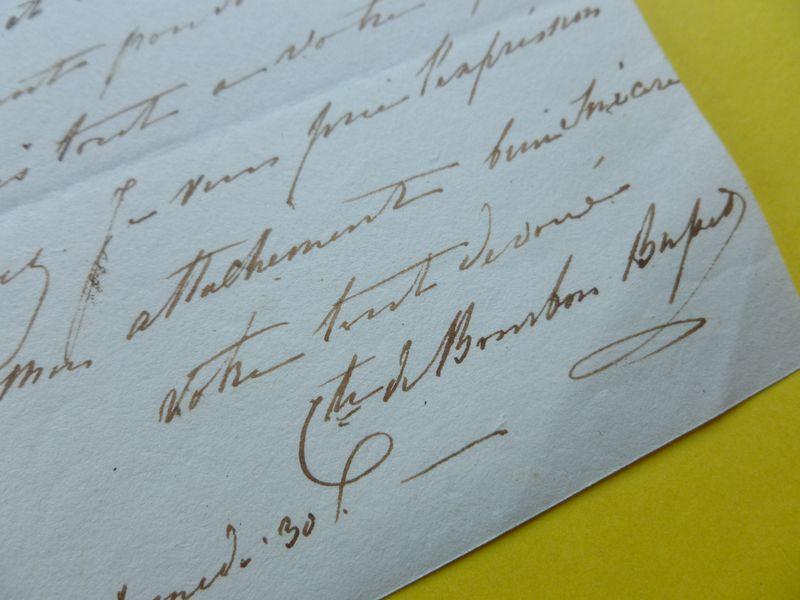 et
tout a votre
Je vous prie l'expression
mon attachement bien sincère
votre tout dévoué
Cte de Bourbon Busset
30